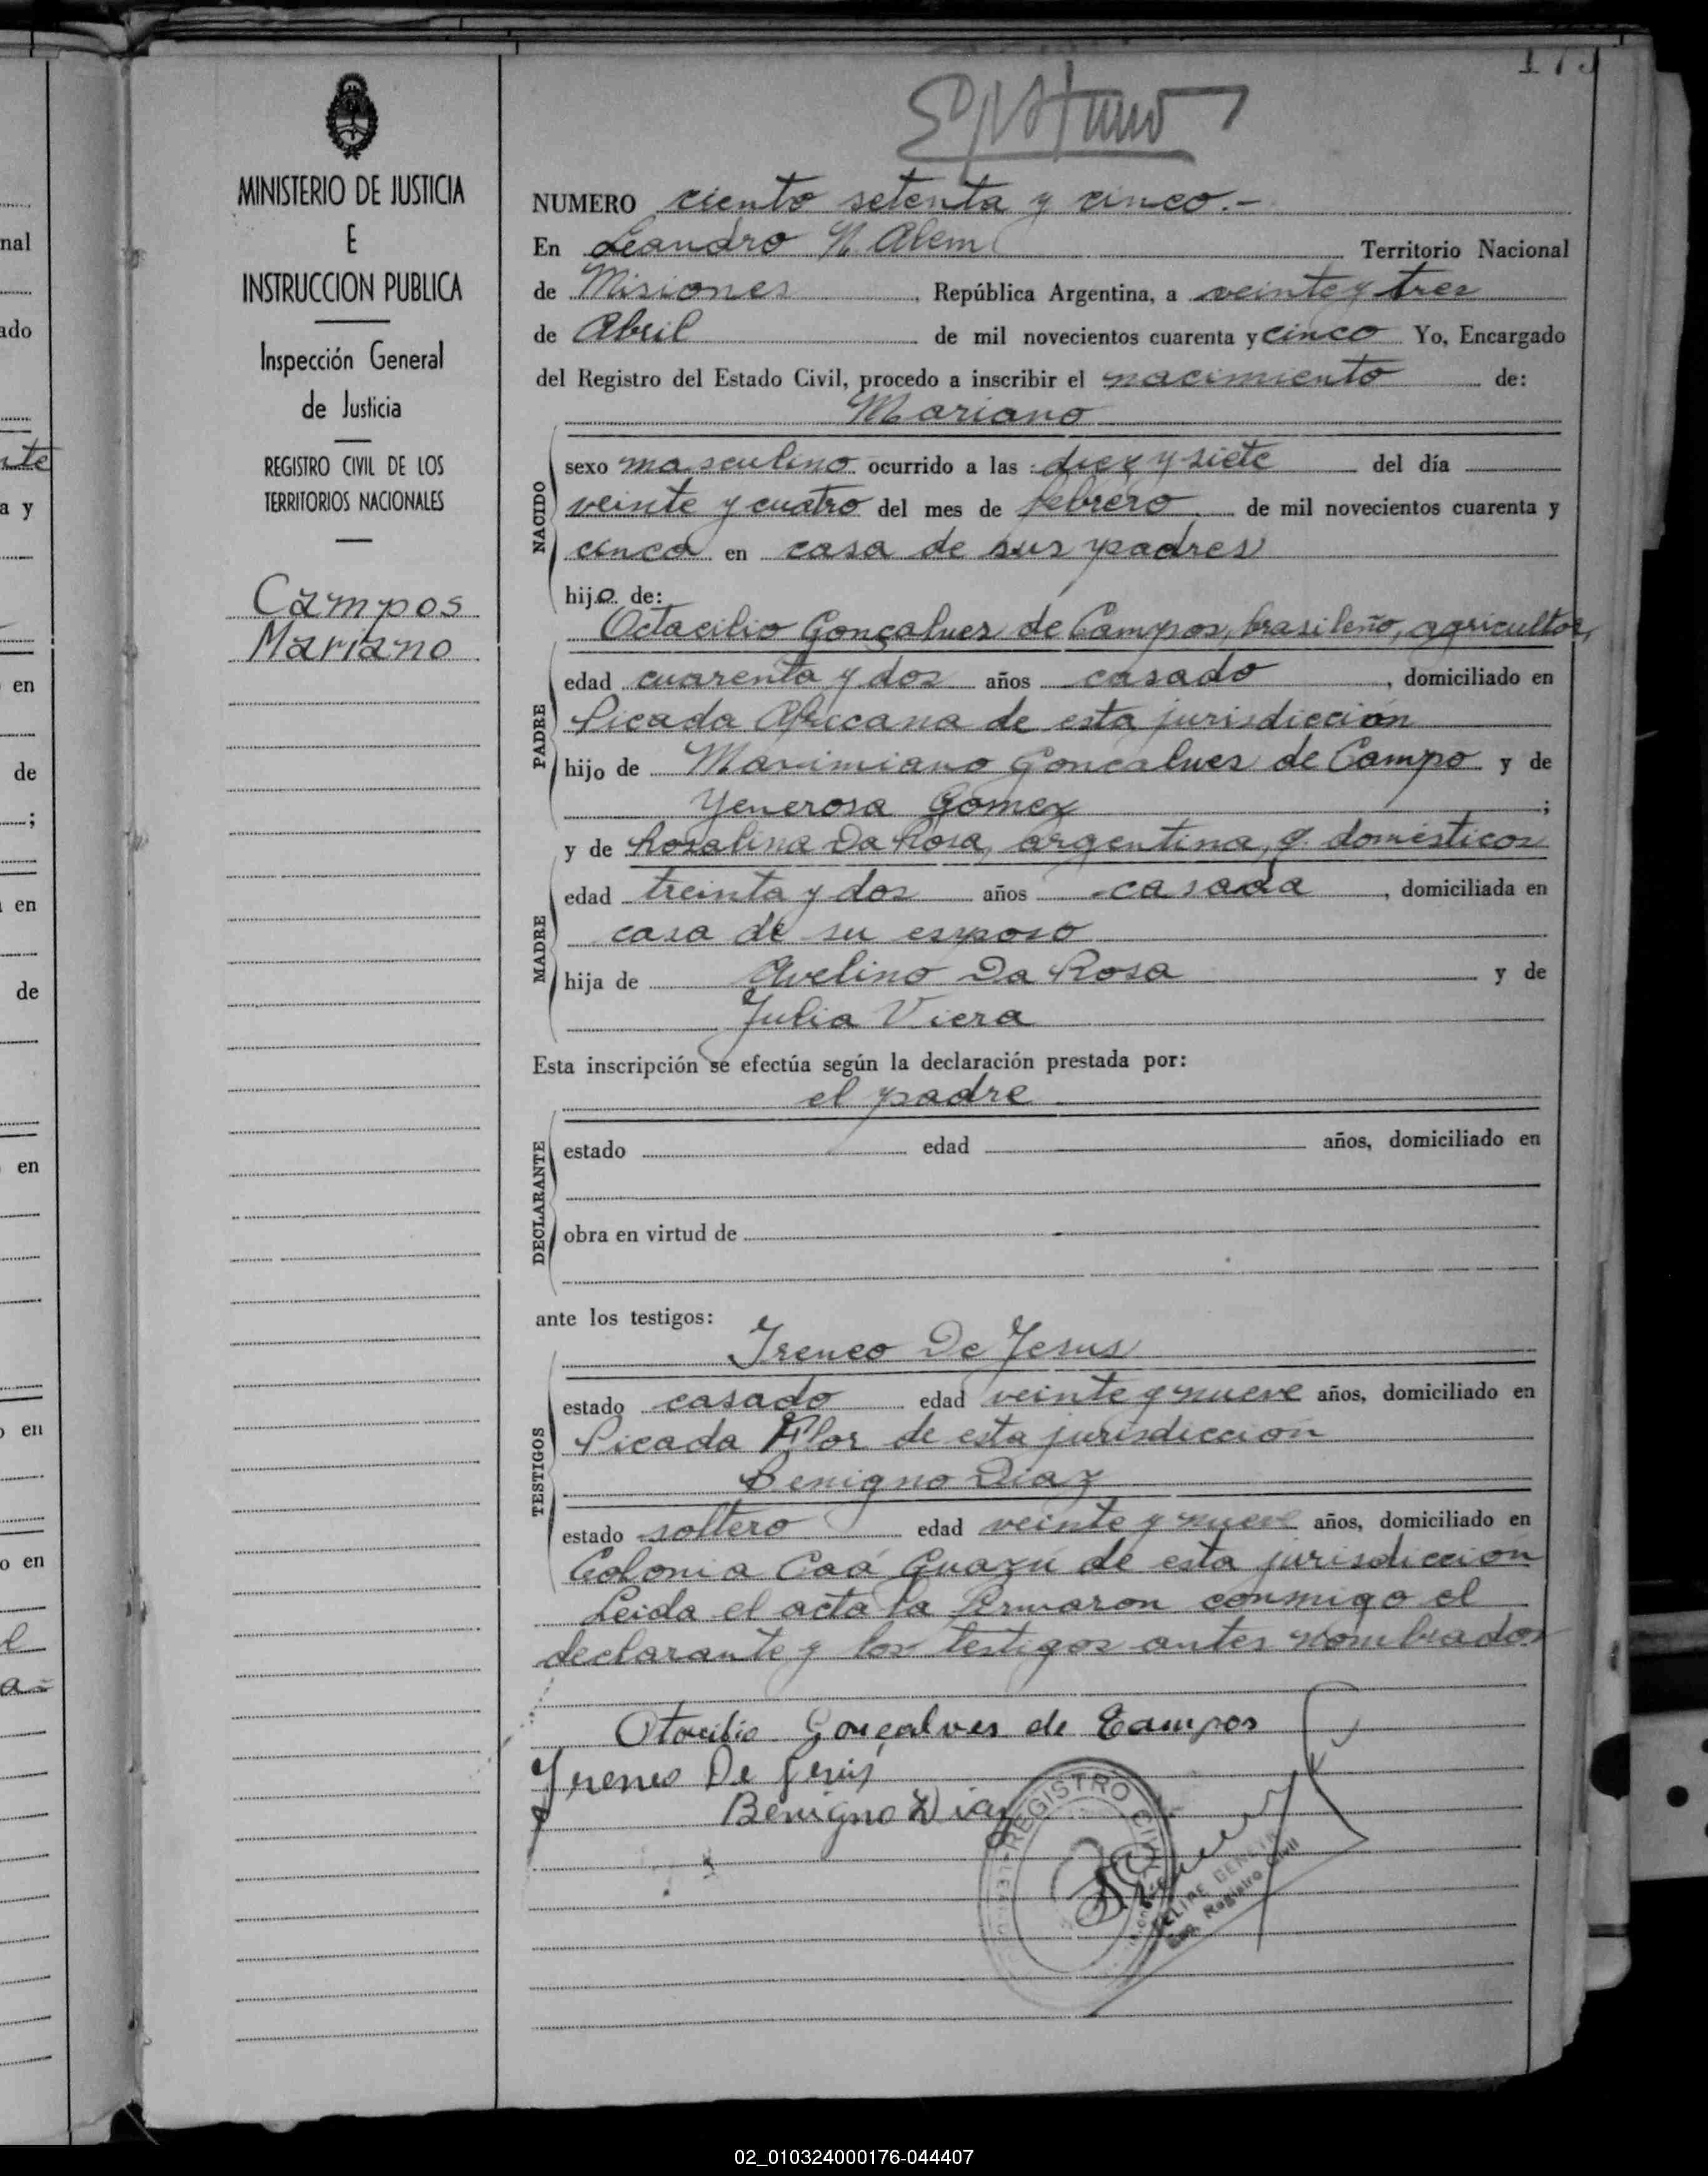 175
MINISTERIO DE JUSTICIA
E
INSTRUCCION PUBLICA
Inspección General
de Justicia
REGISTRO CIVIL DE LOS
TERRITORIOS NACIONALES
Campos
Mariano
NUMERO ciento setenta y cinco.-
En Leandro N. Alem Territorio Nacional
de Misiones, República Argentina, a veinte y tres
de Abril de mil novecientos cuarenta y cinco Yo, Encargado
del Registro del Estado Civil, procedo a inscribir el nacimiento de:
Mariano
NACIDO
sexo masculino ocurrido a las diez y siete del día
veinte y cuatro del mes de febrero de mil novecientos cuarenta y
cinco en casa de sus padres
hijo de:
Octacilio Gonçalves de Campos, brasileño, agricultor,
PADRE
edad cuarenta y dos años casado, domiciliado en
Picada Africana de esta jurisdicción
hijo de Maximiano Goncalves de Campo y de
Yenerosa Gomez;
y de Rosalina Da Rosa, argentina, q. domésticos
MADRE
edad treinta y dos años casada, domiciliada en
casa de su esposo
hija de Avelino Da Rosa y de
Julia Viera
Esta inscripción se efectúa según la declaración prestada por:
el padre
DECLARANTE
estado edad años, domiciliado en
obra en virtud de
ante los testigos:
Ireneo De Jesus
TESTIGOS
estado casado edad veinte y nueve años, domiciliado en
Picada Flor de esta jurisdiccion
Benigno Diaz
estado soltero edad veinte y nueve años, domiciliado en
Colonia Caá Guazú de esta jurisdiccion
Leida el acta la firmaron conmigo el
declarante y los testigos antes nombrados
Otacilio Gonçalves de Campos
Ireneo De Jesús
Benigno Diaz
REGISTRO CIVIL
Enc. Registro Civil
nal
ado
nte
a y
en
de
;
en
de
en
en
o en
02_010324000176-044407